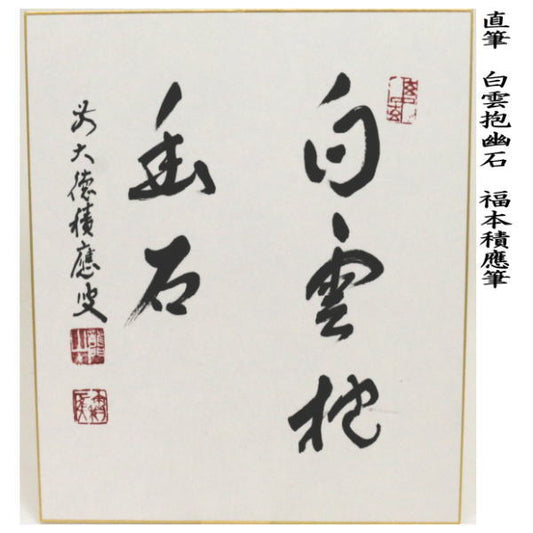 直筆　白雲抱幽石　福本積應筆
白雲抱
幽石
前大徳積應叟